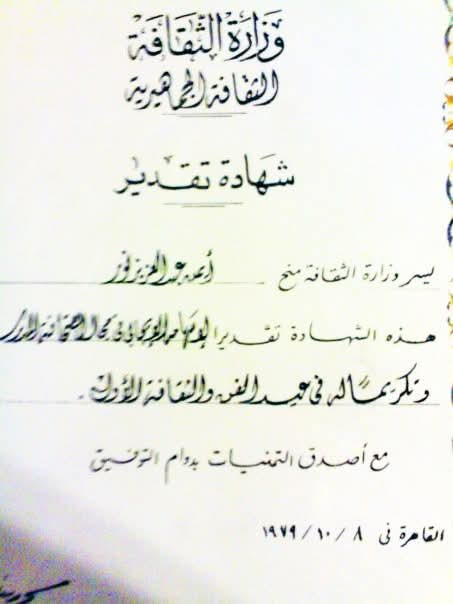 وزارة الثقافة
الثقافة الجماهيرية
شهادة تقدير
يسر وزارة الثقافة منح أيمن عبد العزيز نور
هذه الشهادة تقديرا لإسهامه الإيجابى فى مجال الصحافة
وتكريمًا له فى عيد الفن والثقافة الأول .
مع أصدق التمنيات بدوام التوفيق
القاهرة فى ٨ / ١٠ / ١٩٧٩